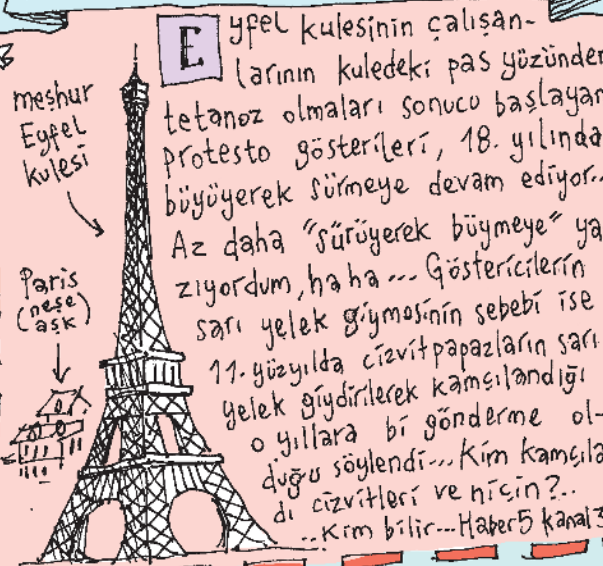 meşhur
Eyfel
kulesi
Paris
(neşe
aşk)
Eyfel kulesinin çalışan-
larının kuledeki pas yüzünden
tetanoz olmaları sonucu başlayan
protesto gösterileri, 18. yılında
büyüyerek sürmeye devam ediyor..
Az daha "sürüyerek büymeye" ya
zıyordum, ha ha... Göstericilerin
sarı yelek giymesinin sebebi ise
11. yüzyılda cizvit papazların sarı
yelek giydirilerek kamçılandığı
o yıllara bi gönderme ol-
duğu söylendi... Kim kamçıla
dı cizvitleri ve niçin?..
..Kim bilir... Haber5 kanal3